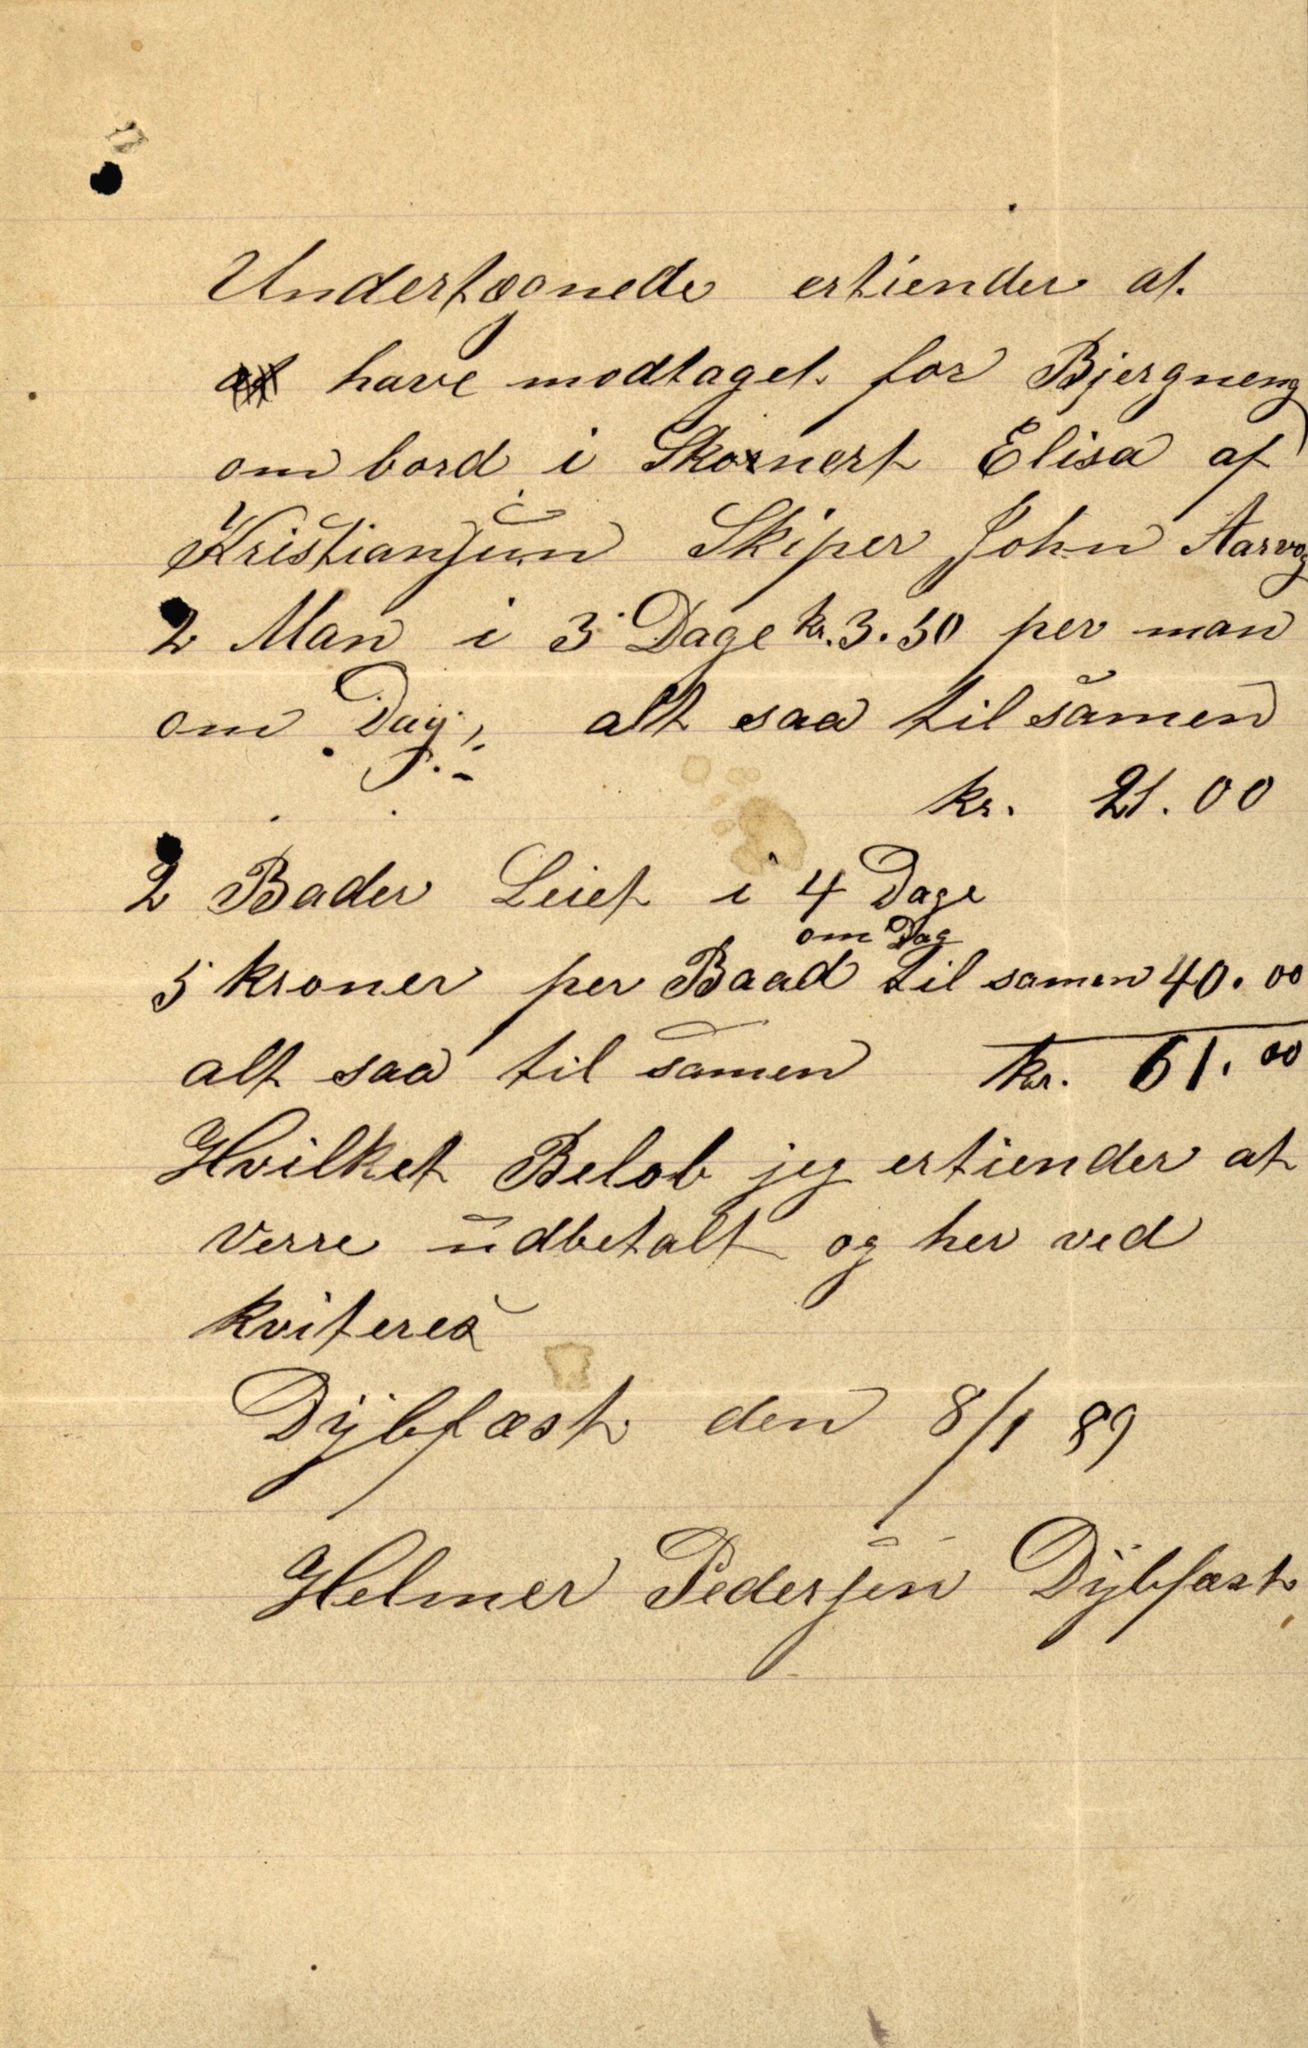 Undertægnede ertiender at
have modtaget for Bjergneng
om bord i Skonert Elisa af
Kristiansun Skiper John Aarvog
2 Man i 3 Dage kr. 3.50 per man
om Dag; alt saa til samen
kr. 21.00
2 Bader Leiet i 4 Dage
om Dag
5 kroner per Baad til samen 40.00
alt saa til samen kr. 61.00
Hvilket Belob jeg ertiender at
verre udbetalt og her ved
kviteres
Dybfæst den 8/1 89
Helmer Pedersen Dybfæst